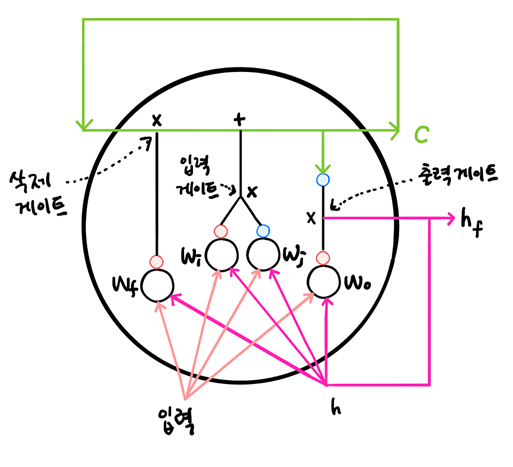 x
+
C
삭제
게이트
입력
게이트
x
x
출력게이트
h_f
W_f
W_i
W_j
W_o
입력
h